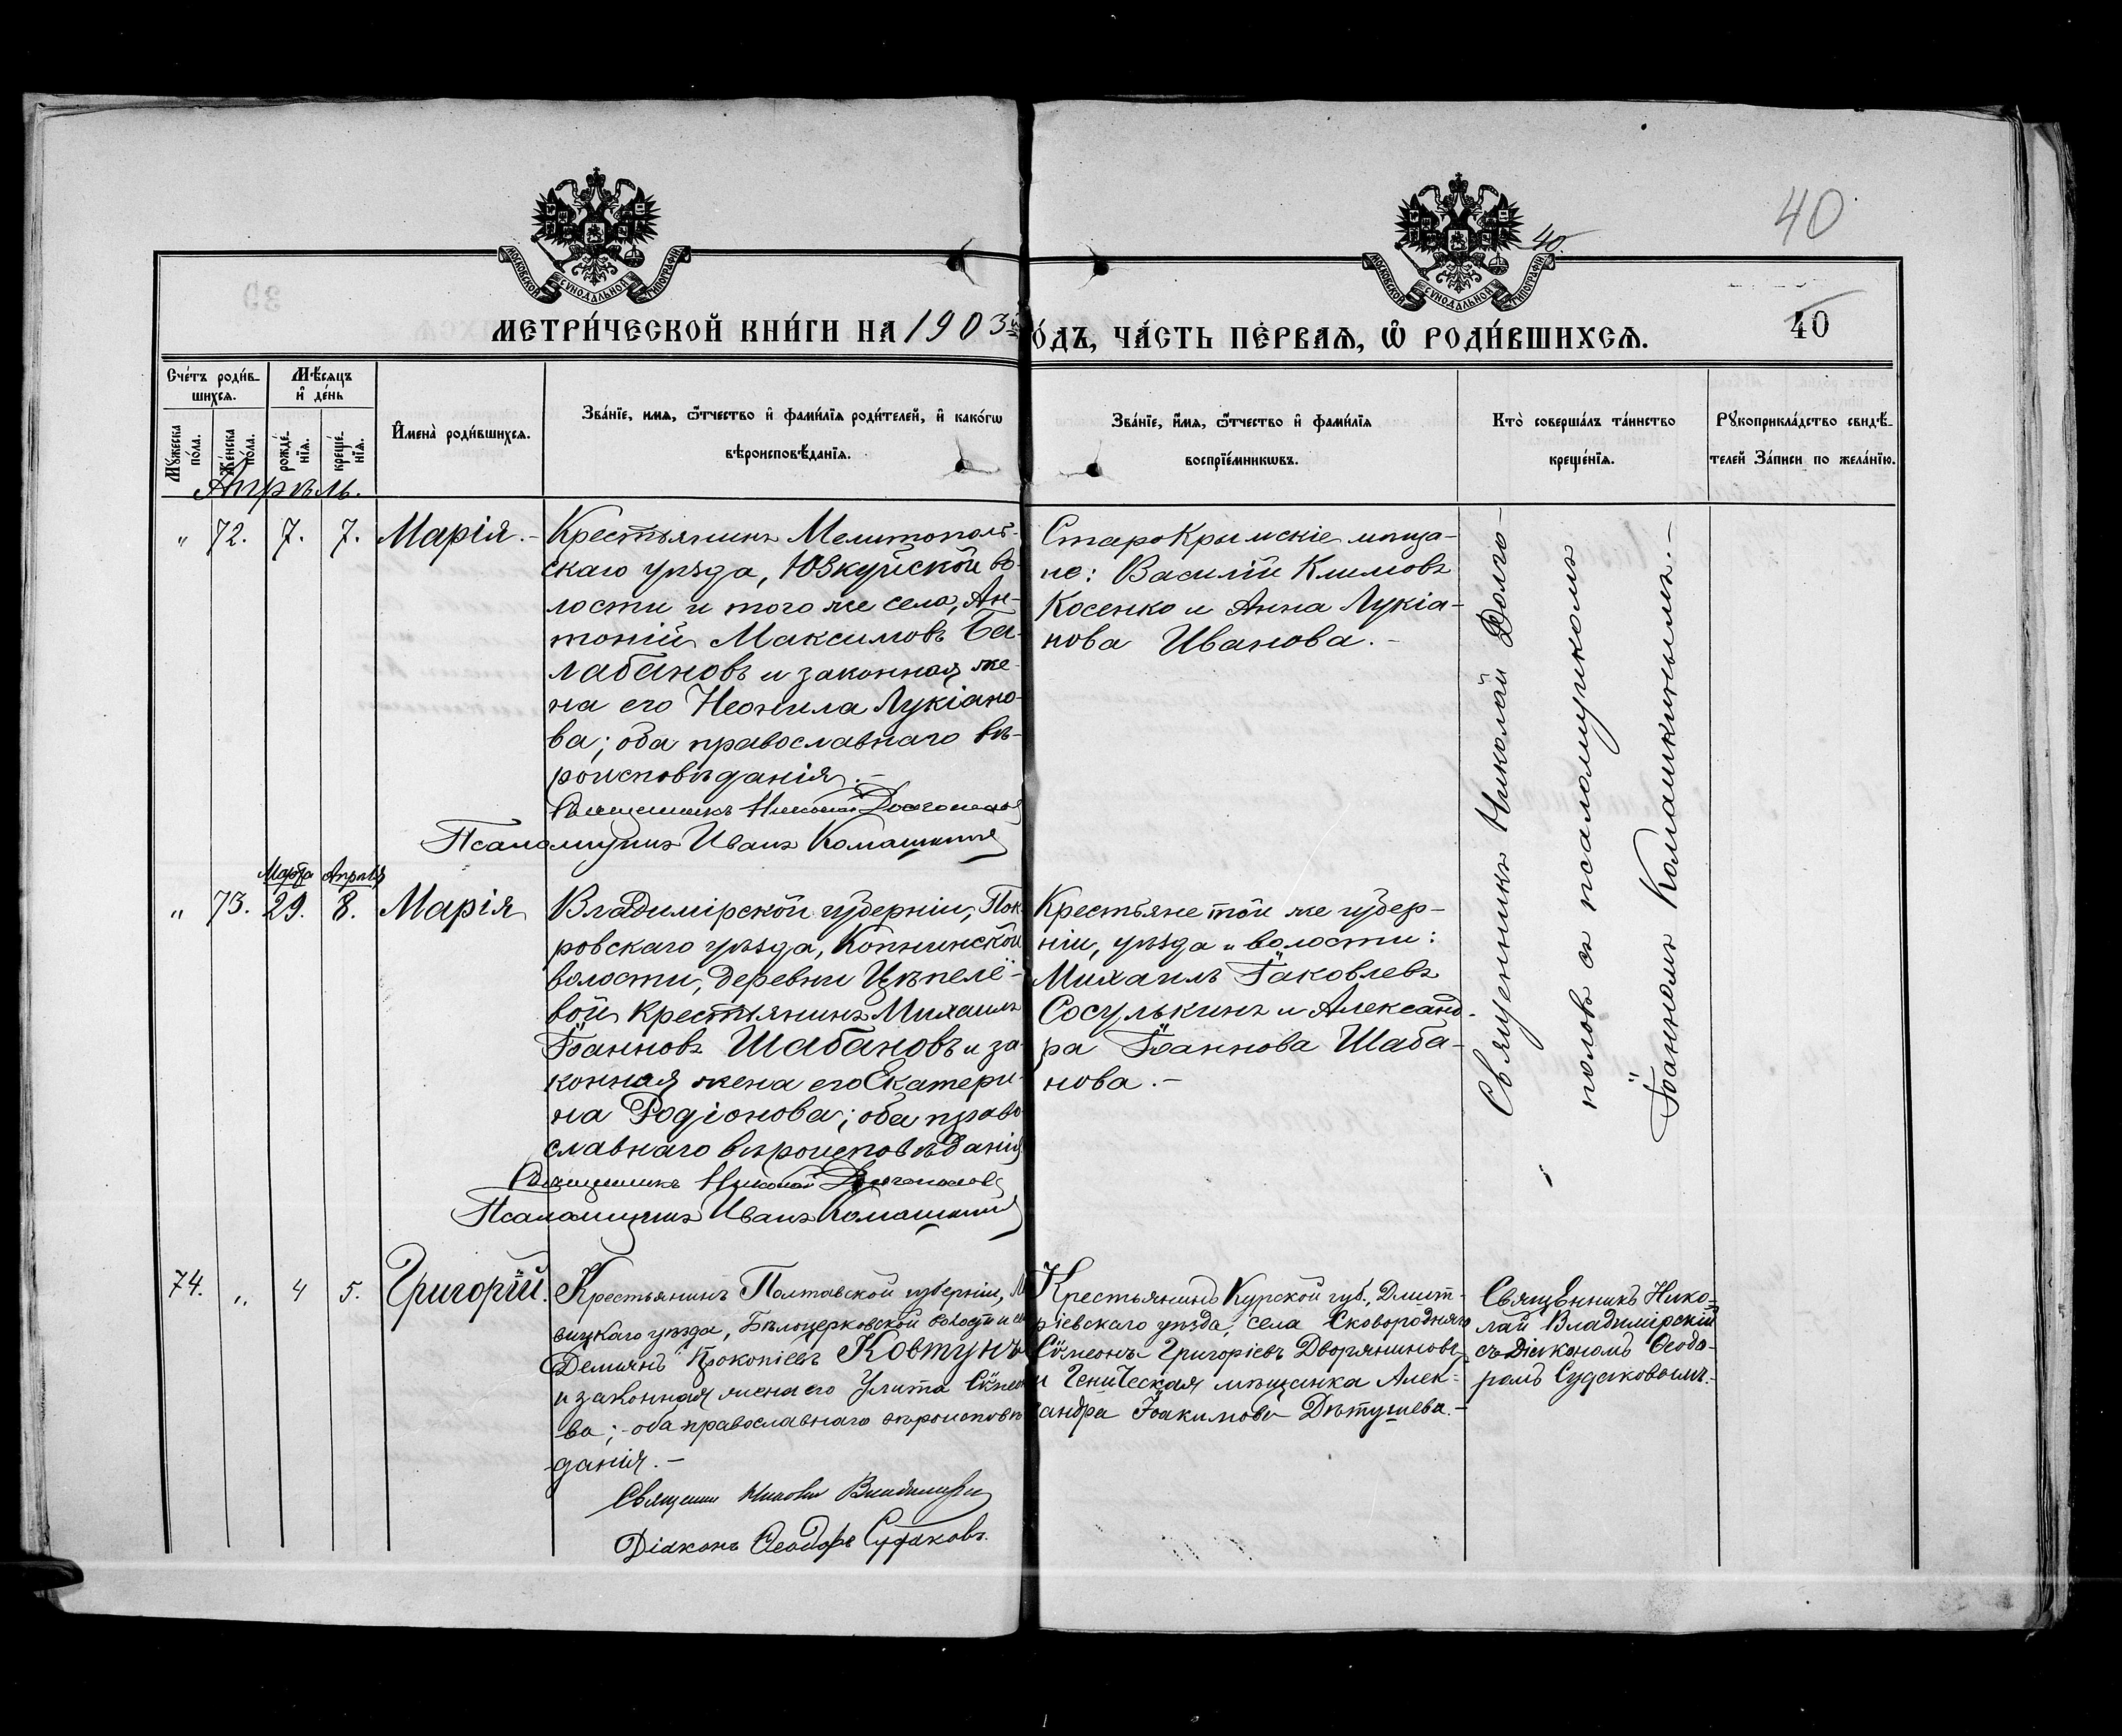 40
40.
40
МОСКОВСКОЙ СУНОДАЛЬНОЙ ТИПОГРАФІИ
МОСКОВСКОЙ СУНОДАЛЬНОЙ ТИПОГРАФІИ
МЕТРИ́ЧЕСКОЙ КНИ́ГИ НА 1903й
О́ДЪ, ЧА́СТЬ ПЕ́РВАѦ, Ѽ РОДИ́ВШИХСѦ.
Сче́тъ роди́в-
шихсѧ.
Мѣ́сѧцъ
и҆ де́нь
Мꙋ́жеска
по́ла.
Же́нска
по́ла.
рожде́-
нїѧ.
креще́-
нїѧ.
И҆мена̀ роди́вшихсѧ.
Зва́нїе, имѧ, ѻ҆́тчество и҆ фами́лїѧ роди́телей, и҆ како́гѡ
вѣроисповѣ́данїѧ.
Зва́нїе, и҆́мѧ, ѻ҆́тчество и҆ фами́лїѧ
воспрїе́мникѡвъ.
Кто̀ соверша́лъ та́инство
креще́нїѧ.
Рꙋкоприкла́дство свидѣ́-
телей За́писи по жела́нїю.
Апрѣль.
" 72. 7. 7. Марія.-
Крестьянинъ Мелитополь-
скаго уѣзда, Юзкуйской во-
лости и того же села, Ан-
тоній Максимовъ Ба-
лабановъ и законная же-
на его Неонила Лукіано-
ва; оба православнаго вѣ-
роисповѣданія.-
Священникъ Николай Долгополовъ
Псаломщикъ Иванъ Комашкинъ
СтароКрымскіе мѣща-
не: Василій Климовъ
Косенко и Анна Лукіа-
нова Иванова.-
Священникъ Николай Долго-
половъ съ псаломщикомъ
Іоанномъ Комашкинымъ.-
Марта Апрѣля
" 73. 29. 8. Марія
Владимірской губерніи, Пок-
ровскаго уѣзда, Копнинской
волости, деревни Цѣпелё-
вой крестьянинъ Михаилъ
Іоанновъ Шабановъ и за-
конная жена его Екатери-
на Родіонова; оба право-
славнаго вѣроисповѣданія
Священникъ Николай Долгополовъ
Псаломщикъ Иванъ Комашкинъ
Крестьяне той же губер-
ніи, уѣзда и волости:
Михаилъ Іаковлевъ
Сосулькинъ и Александ-
ра Іоаннова Шаба-
нова.-
74. " 4 5. Григорій.
Крестьянинъ Полтавской губерніи,
вицкаго уѣзда, Бѣлоцерковской волости и
Демьянъ Прокопіевъ Ковтунъ
и законная жена его Улита Сѵмеоно-
ва; оба православнаго вѣроисповѣ-
данія.-
Священник Николай Владимірскій
Діаконъ Ѳеодоръ Судаковъ.
Крестьянинъ Курской губ., Дмит-
ріевскаго уѣзда, села Сковородняго
Сѵмеонъ Григоріевъ Дворяниновъ
и Геническая мѣщанка Алек-
сандра Іоакимова Дѣтушева.-
Священникъ Нико-
лай Владимірскій
съ Діакономъ Ѳеодо-
ромъ Судаковымъ.-